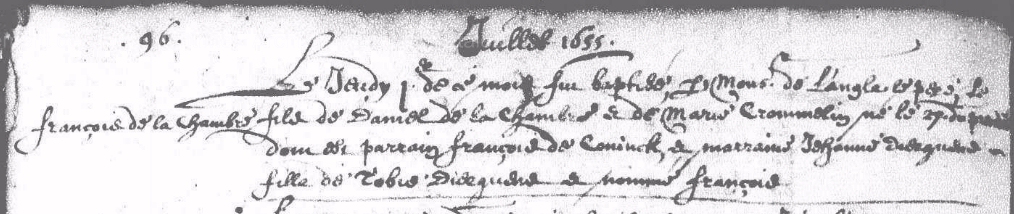 96.
Juillet 1655.
Le Jeudy 1er de ce mois fut baptisé, p Monsr de Langle le pere, le
françois de la Chambre fils de Daniel de la Chambre et de Marie Crommelin né le 27. du passé
dont est parrain françois de Coninck, et marraine Jehanne Dierquens
fille de Tobie Dierquens et nommé françois